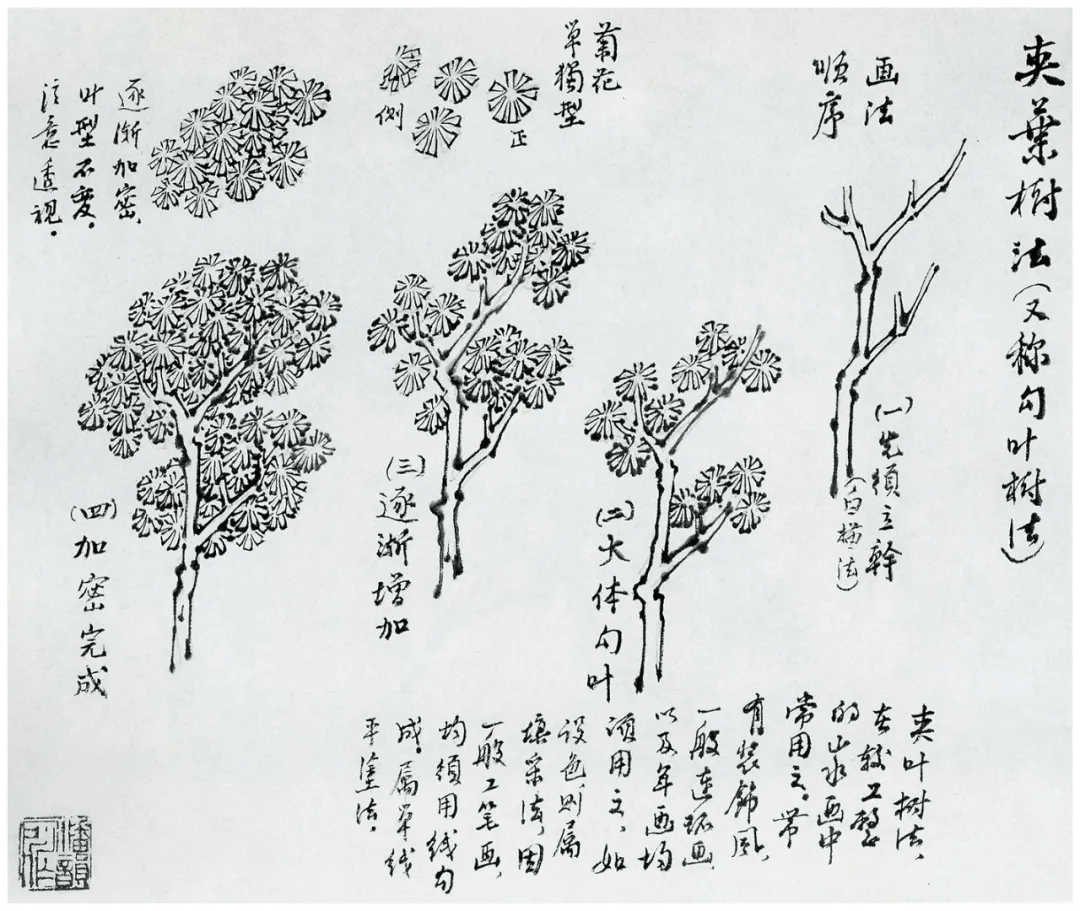 夹葉樹法(又称勾叶树法)
画法
順序
(一)先須立幹
(白描法)
菊花
单獨型
正
侧
逐渐加密、
叶型不变。
注意透视。
(二)大体勾叶
(三)逐渐增加
(四)加密完成
夹叶树法、
在较工整
的山水画中
常用之。带
有装飾風、
一般连环画
以及年画均
須用之、如
设色则属
填采法、因
一般工笔画、
均須用线勾
成。属单线
平塗法。